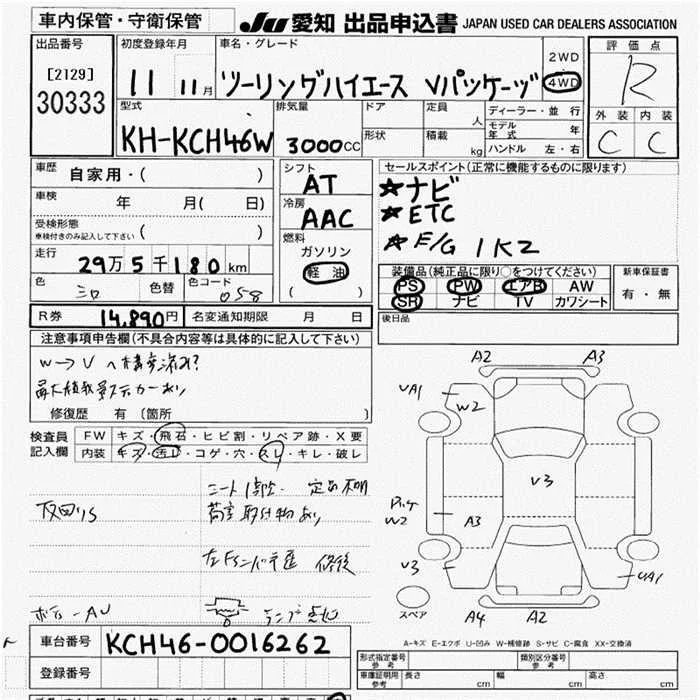 車内保管・守衛保管
JU 愛知 出品申込書 JAPAN USED CAR DEALERS ASSOCIATION
出品番号
[2129]
30333
初度登録年月
11 11月
車名・グレード
ツーリングハイエース Vパッケージ
2WD
4WD
評価点
R
外装 内装
C C
型式
KH-KCH46W
排気量
3000CC
ドア
形状
定員 人
積載 kg
ディーラー・並行
モデル年式 年
ハンドル 左・右
車歴 自家用・( )
車検 年 月( 日)
受検形態
車検付きのみ記入して下さい ( )
走行 29万5千180km
色 色替 色コード
058
シフト
AT
冷房
AAC
燃料
ガソリン
軽油
( )
セールスポイント(正常に機能するものに限ります)
★ナビ
★ETC
★E/G 1KZ
装備品(純正品に限り○をつけてください)
PS PW エアB AW
SR ナビ TV カワシート
新車保証書
有・無
R券 14,890円 名変通知期限 月 日
後日品
注意事項申告欄(不具合内容等は具体的に記入して下さい)
W→V
修復歴 有 〔箇所 〕
検査員
記入欄
FW キズ・飛石・ヒビ割・リペア跡・X要
内装 キズ・汚レ・コゲ・穴・スレ・キレ・破レ
シート
定員不明
荷室取付物あり
修後
A2 A3
UA1
W2
V3
W2
A3
V3
UA1
A4 A2
スペア
A-キズ E-エクボ U-凹み W-補修跡 S-サビ C-腐食 XX-交換済
車台番号 KCH46-0016262
登録番号
形式指定番号
参考
類別区分番号
参考
車庫証明用
参考
長さ cm 幅 cm 高さ cm